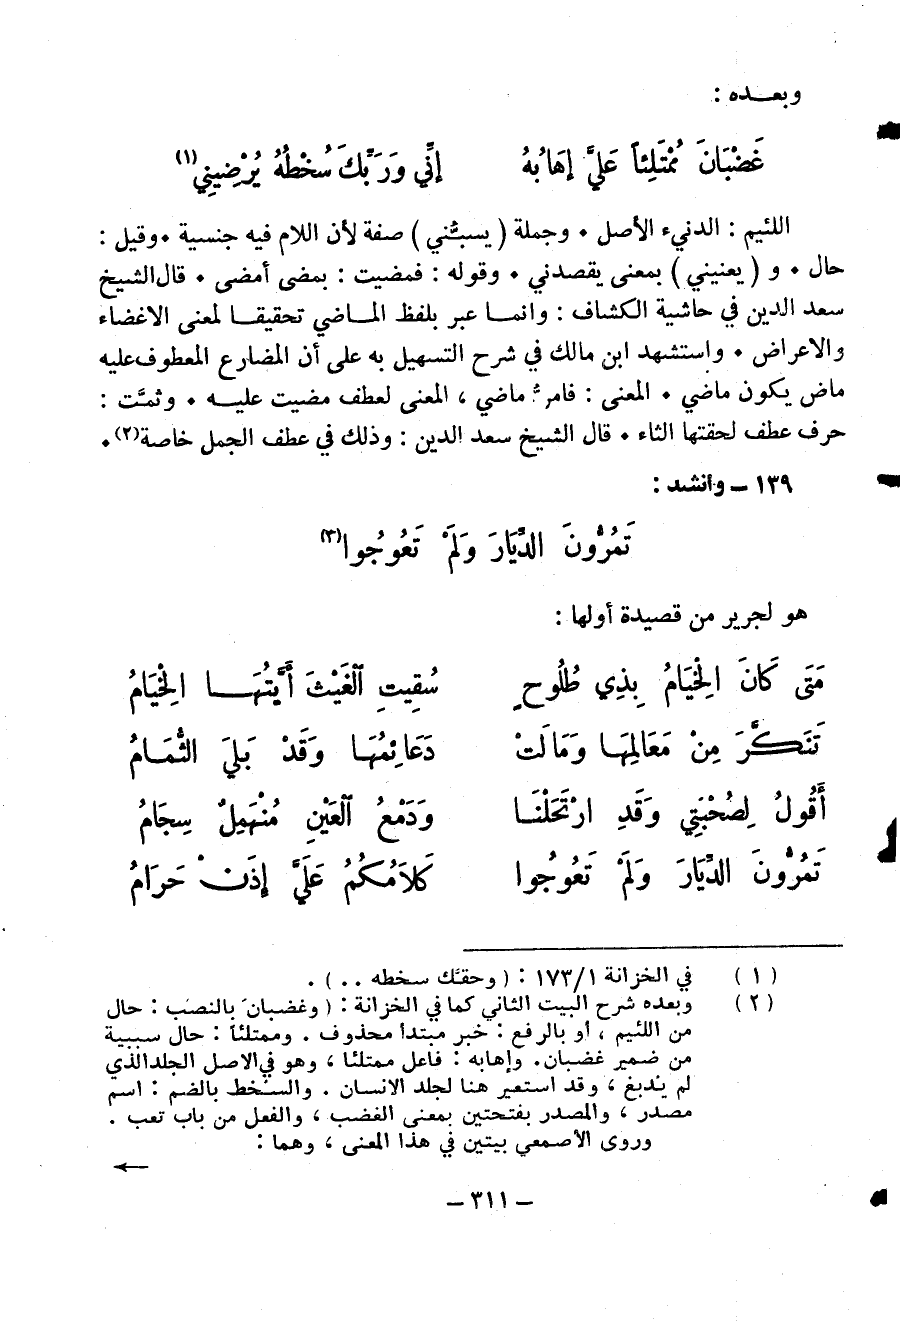 وبعـــده :
غَضْبَانَ مُمْتَلِئاً عَلَيَّ إهَابُهُ     إنِّي وَرَبِّكَ سُخْطُهُ يُرْضِينِي(١)
اللئيم : الدنيء الأصل ٠ وجملة ( يسبّني ) صفة لأن اللام فيه جنسية ٠ وقيل :
حال ٠ و ( يعنيني ) بمعنى يقصدني ٠ وقوله : فمضيت : بمضى أمضى ٠ قال الشيخ
سعد الدين في حاشية الكشاف : وانمـا عبر بلفظ المـاضي تحقيقـا لمعنى الاغضاء
والاعراض ٠ واستشهد ابن مالك في شرح التسهيل به على أن المضارع المعطوف عليه
ماض يكون ماضي ٠ المعنى : فامرُّ ماضي ، المعنى لعطف مضيت عليـه ٠ وثمَّت :
حرف عطف لحقتها الثاء ٠ قال الشيخ سعد الدين : وذلك في عطف الجمل خاصة(٢) ٠
١٣٩ ــ وأنشد :
تَمُرُّونَ الدِّيَارَ وَلَمْ تَعُوجُوا(٣)
هو لجرير من قصيدة أولها :
مَتَى كَانَ الْخِيَامُ بِذِي طُلُوحٍ     سُقِيتِ الْغَيْثَ أَيَّتُهَـــا الْخِيَامُ
تَنَكَّرَ مِنْ مَعَالِمِهَـا وَمَالَتْ     دَعَائِمُهَـا وَقَدْ بَلِيَ الثُّمَـامُ
أَقُولُ لِصُحْبَتِي وَقَدِ ارْتَحَلْنَـا     وَدَمْعُ الْعَيْنِ مُنْهَمِلٌ سِجَامُ
تَمُرُّونَ الدِّيَارَ وَلَمْ تَعُوجُوا     كَلَامُكُمُ عَلَيَّ إِذَنْ حَرَامُ
( ١ ) في الخزانة ١٧٣/١ : ( وحقك سخطه ٠٠ ) .
( ٢ ) وبعده شرح البيت الثاني كما في الخزانة : ( وغضبانَ بالنصب : حال
من اللئيم ، أو بالرفع : خبر مبتدأ محذوف . وممتلئاً : حال سببية
من ضمير غضبان. وإهابه : فاعل ممتلئا ، وهو في الاصل الجلد الذي
لم يدبغ ، وقد استعير هنا لجلد الانسان . والسخط بالضم : اسم
مصدر ، والمصدر بفتحتين بمعنى الغضب ، والفعل من باب تعب .
وروى الأصمعي بيتين في هذا المعنى ، وهما :
←
ــ ٣١١ ــ